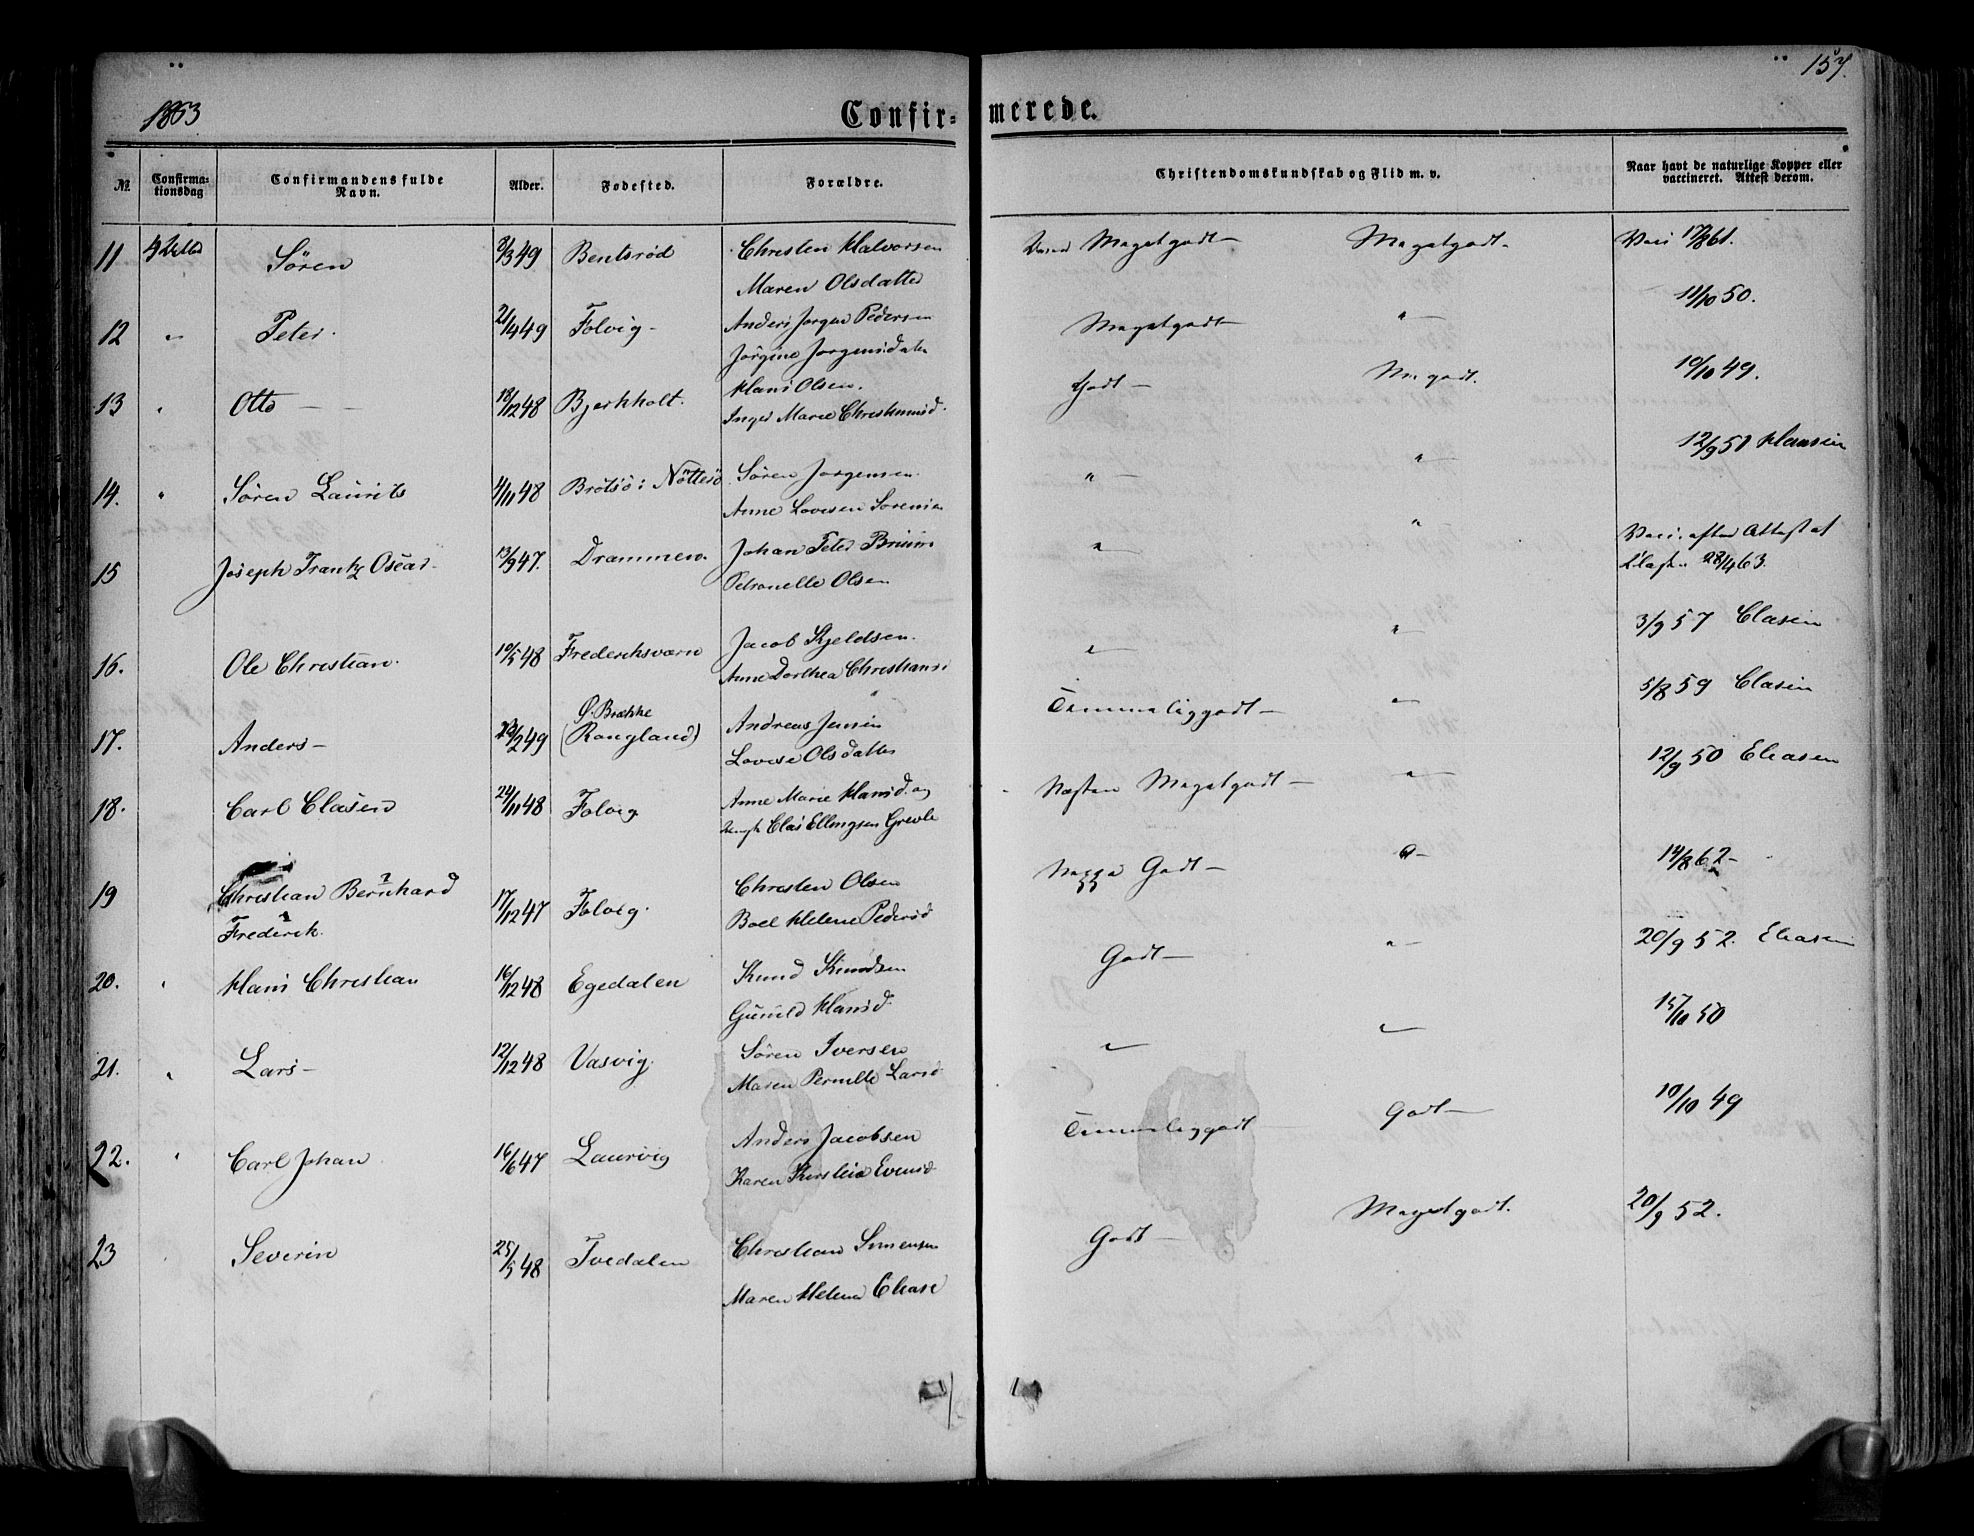 157.
1863
Confir= merede.
№ Confirma=tionsdag Confirmandens fulde Navn. Alder. Fødested. Forældre. Christendomskundskab og Flid m. v. Naar havt de naturlige Kopper eller vaccineret. Attest derom.
11 Sören 3/3 49 Bentsröd Christen Halvorsen Megetgodt Megetgodt. Vacc 17/8 61.
Maren Olsdatter
12 " Peter. 21/4 49 Folvig Anders Jørgen Pedersen Megetgodt " 11/10 50.
Jörgine Jörgensdater
13 " Otto 18/12 48 Bjerkholt. Hans Olsen. Godt M. godt. 10/10 49.
Inger Marie Christensd.
14. " Sören Laurits 4/11 48 Brötsö: Nötterö Sören Jørgensen " " 12/9 51
Anne Lovisen Sorensen
15 Joseph Frantz Oscar. 13/9 47. Drammen. Johan Peter Bruun " " Vacc. efter Attest af
Petronelle Olsen 28/4 63.
16. Ole Christian. 10/5 48 Frederiksværn Jacob Kjeldsen. " " 3/9 57 Clasen
Anne Dorthea Christians
17. Anders 23/2 49 Ø. Brække (Rongland) Andreas Jensen Temmeliggodt " 5/8 59 Clasen
Lovise Olsdatter
18. Carl Clasen 24/11 48 Folvig Anne Marie Hansd. og Næsten Megetgodt " 12/9 50 Eliasen
Clas Ellingsen Grevle
19 Christian Bernhard 17/12 47 Folvig. Christen Olsen Godt " 14/8 62
Frederik. Boel Helene Pedersd
20. " Hans Christian 16/12 48 Egedalen Knud Knudsen Godt " 20/9 52. Eliasen
Gunild Hansd.
21. " Lars 12/12 48 Vasvig. Sören Iversen " " 15/10 50
Maren Pernille Larsd
22. " Carl Johan 16/6 47 Laurvig Anders Jacobsen Temmeliggodt Godt 10/10 49
Karen Kirstine Evensd
23 Severin 25/5 48 Tvedalen Christian Simensen Godt Megetgodt. 20/9 52.
Maren Helene Eliase